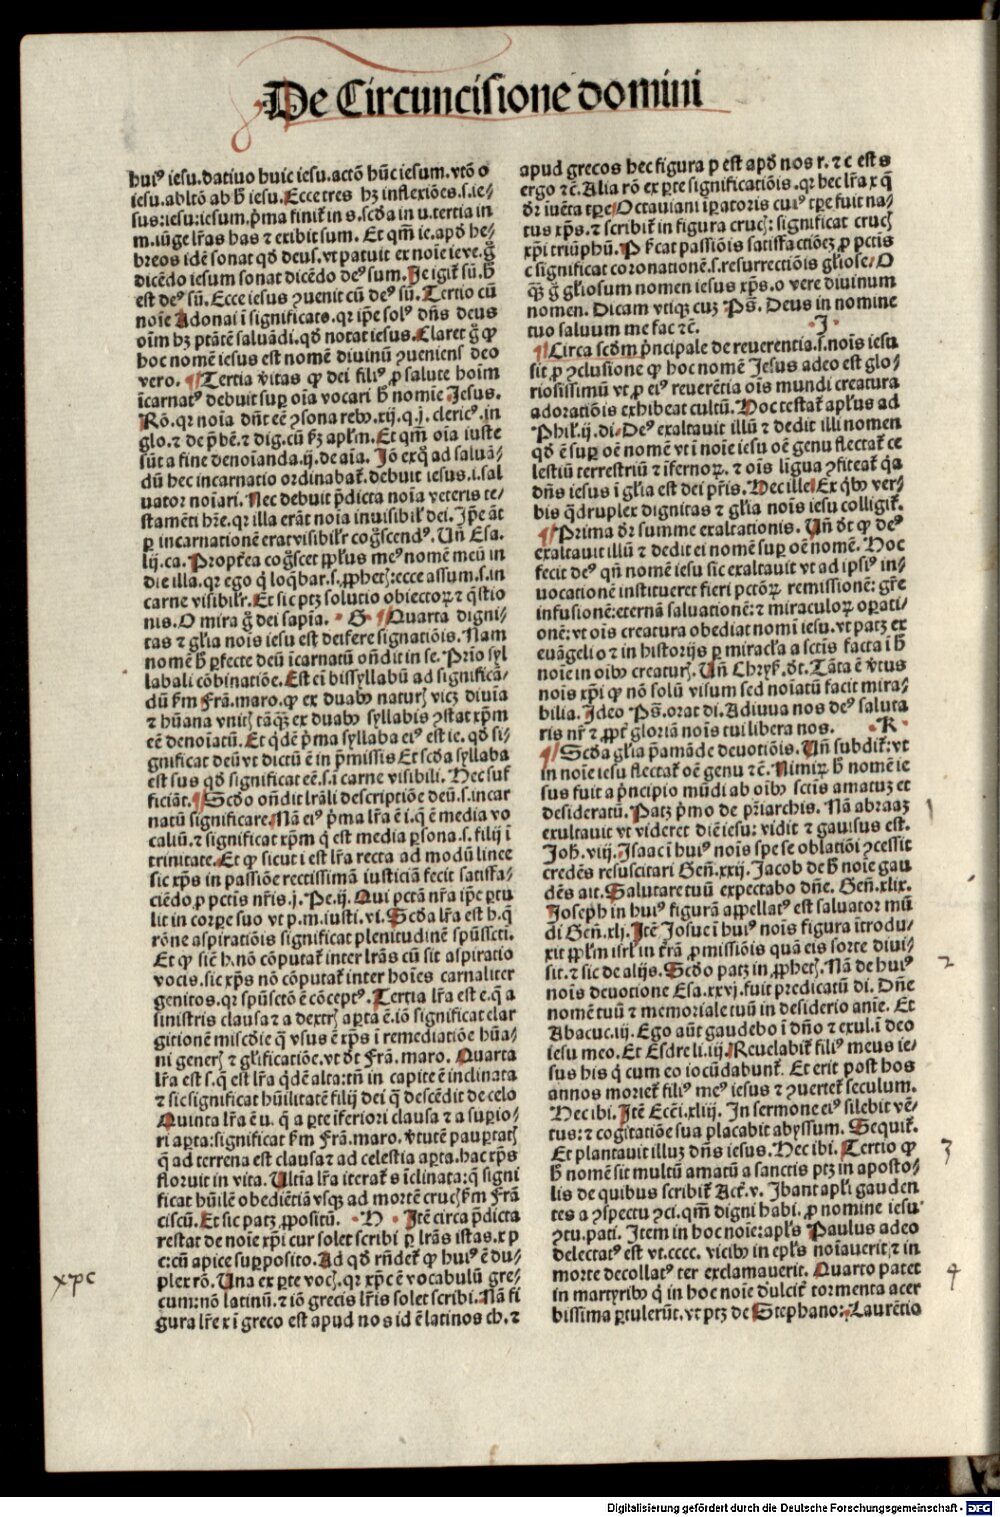 De Circuncisione domini
huiꝰ iesu.datiuo huic iesu.actō hūc iesum.vtō o
iesu.abltō ab h̄ iesu.Ecce tres hꝫ inflexiōes.s.ie-
sus:iesu:iesum.p̄ma finit̄ in s.scd̄a in u.tertia in
m.iūge lr̄as has ⁊ exibit sum. Et qm̄ ie.apd̄ he-
breos idē sonat qd̄ deus.vt patuit ex noīe ieve.g̊
dicēdo iesum sonat dicēdo deꝰ sum.Je igit̄ sū.h̄
est deꝰ sū.Ecce iesus ꝯuenit cū deꝰ sū.Tertio cū
noīe Adonai ī significato.qr ip̄e solꝰ dn̄s deus
oīm hꝫ ptātē saluādi.qd̄ notat iesus.Claret g̊ ꝙ
hoc nomē iesus est nomē diuinū ꝯueniens deo
vero. ¶Tertia v̄itas ꝙ dei filiꝰ ꝓ salute hoīm
īcarnatꝰ debuit suꝑ oīa vocari h̄ nomīe Jesus.
Rō.qr noīa dn̄t eē ꝯsona rebꝰ.xij.q.j.cleric̄.in
glo.⁊ de p̄bē.⁊ dig.cū fꝫ apl̄m.Et qm̄ oīa iuste
sūt a fine denoīanda.ij.de aīa. Jō exq̊ ad saluā-
dū hec incarnatio ordinabat̄.debuit iesus.i.sal
uator noīari. Nec debuit p̄dicta noīa veteris te-
stamēti hr̄e.qr illa erāt noīa inuisibil̓ dei. Jp̄e āt
ꝑ incarnationē erat visibilr̄ cog̊scendꝰ. Un̄ Esa.
lij.ca.Propt̄ea cog̊scet pp̄lus meꝰ nomē meū in
die illa.qr ego q̇ loq̄bar.s.ꝓphetꝭ:ecce assum.s.in
carne visibilr̄.Et sic ptꝫ solutio obiectoꝝ ⁊ q̄stio
nis.O mira g̊ dei sapīa. · G · ¶Quarta digni-
tas ⁊ gl̄ia nois iesu est deifere signatiōis. Nam
nomē h̄ ꝑfecte deū īcarnatū on̄dit in se. Prīo syl
labali cōbinatiōe.Est eī bissyllabū ad significā-
dū s̄m Frā.maro.ꝙ ex duabꝰ naturꝭ vicꝫ diuīa
⁊ hūana vnitꝭ tāqꝫ ex duabꝰ syllabis ꝯstat xp̄m
eē denoīatū.Et q̇dē p̄ma syllaba eiꝰ est ie.qd̄ si-
gnificat deū vt dictū ē in p̄missis Et scd̄a syllaba
est sus qd̄ significat eē.s.i carne visibili. Hec suf
ficiāt. ¶Scd̄o on̄dit lr̄ali descriptiōe deū.s.incar
natū significare.Nā eiꝰ p̄ma lr̄a ē i.q̄ ē media vo
caliū.⁊ significat xp̄m q̇ est media ꝑsona.s.filij ī
trinitate.Et ꝙ sicut i est lr̄a recta ad modū linee
sic xp̄s in passiōe rectissimā iusticiā fecit satisfa-
ciēdo ꝓ pctis nr̄is.j.Pe.ij. Qui pctā nr̄a ip̄e ꝑtu
lit in corꝑe suo vt p.m.iusti.vi.Scd̄a lr̄a est h.q̄
rōne aspiratiōis significat plenitudinē spūsscti.
Et ꝙ sicut h.nō cōputat̄ inter lr̄as cū sit aspiratio
vocis.sic xp̄s nō cōputat̄ inter hoīes carnaliter
genitos.qr spūsctō ē cōceptꝰ.Tertia lr̄a est e.q̄ a
sinistris clausa ⁊ a dextrꝭ aꝑta ē.iō significat elar
gitionē miscd̄ie q̄ vsus ē xp̄s ī remediatiōe hūa-
ni generꝭ ⁊ gl̄ificatiōe.vt d̄t Frā.maro. Quarta
lr̄a est s.q̄ est lr̄a q̇dē alta:tn̄ in capite ē inclinata
⁊ sic significat hūilitatē filij dei q̇ descēdit de celo
Quinta lr̄a ē u. q̄ a ꝑte īferiori clausa ⁊ a suꝑio-
ri aꝑta:significat s̄m Frā.maro. v̄tutē pauꝑtatꝭ
q̄ ad terrena est clausa ⁊ ad celestia aꝑta.hac xp̄s
floruit in vita. Ultīa lr̄a iterat̄ s īclinata:q̄ signi
ficat hūilē obediētiā vsqꝫ ad mortē crucꝭ s̄m Frā
ciscū.Et sic patꝫ ꝓpositū. · H · Jtē circa p̄dicta
restat de noīe xp̄i cur solet scribi ꝑ lr̄as istas.x p
c:cū apice supposito.Ad qd̄ rn̄det̄ ꝙ huiꝰ ē du-
plex rō. Una ex ꝑte vocꝭ.qr xp̄c ē vocabulū gre-
cum:nō latinū.⁊ iō grecis lr̄is solet scribi. Nā fi
gura lr̄e x ī greco est apud nos id ē latinos ch.⁊
apud grecos hec figura p est apd̄ nos r.⁊ c est s
ergo ⁊c̄.Alia rō ex ꝑte significatiōis.qr hec lr̄a x q̄
d̄r iuēta tꝑe Octauiani īꝑatoris cuiꝰ tꝑe fuit na-
tus xp̄s.⁊ scribit̄ in figura crucꝭ:significat crucꝭ
xp̄i triūphū.P s̄cat passiōis satisfactiōeꝫ ꝓ pctis
c significat coronationē.s.resurrectiōis gl̄iose.O
qꝫ g̊ gl̄iosum nomen iesus xp̄s.o vere diuinum
nomen. Dicam vtiqꝫ cuꝫ Ps̄. Deus in nomine
tuo saluum me fac ⁊c̄. · J ·
¶Circa scd̄m p̄ncipale de reuerentia.s.nois iesu
sit ꝓ ꝯclusione ꝙ hoc nomē Jesus adeo est glo-
riosissimū vt ꝓ eiꝰ reuerētia oīs mundi creatura
adoratiōis exhibeat cultū. Hoc testat̄ apl̄us ad
Phil̓.ij.di.Deꝰ exaltauit illū ⁊ dedit illi nomen
qd̄ ē suꝑ oē nomē vt ī noīe iesu oē genu flectat̄ ce
lestiū terrestriū ⁊ īfernoꝝ.⁊ oīs līgua ꝯfiteat̄ q̇a
dn̄s iesus ī gl̄ia est dei pr̄is. Hec ille Ex q̇bꝰ ver-
bis q̄druplex dignitas ⁊ gl̄ia nois iesu colligit̄.
¶Prima d̄r summe exaltationis. Un̄ d̄t ꝙ deꝰ
exaltauit illū ⁊ dedit ei nomē suꝑ oē nomē. Hoc
fecit deꝰ qn̄ nomē iesu sic exaltauit vt ad ipsiꝰ in-
vocationē institueret fieri pctōꝝ remissionē:gr̄e
infusionē:eternā saluationē:⁊ miraculoꝝ oꝑati-
onē:vt oīs creatura obediat nomī iesu.vt patꝫ ex
euāgelio ⁊ in historijs ꝑ miracl̄a a sctīs facta ī h̄
noīe in oībꝰ creaturꝭ. Un̄ Chrys̄.d̄t. Tāta ē v̄tus
nois xp̄i ꝙ nō solū visum sed noīatū facit mira-
bilia. Jdeo Ps̄.orat di.Adiuua nos deꝰ saluta
ris nr̄ ⁊ ꝓpt̄ gloriā nois tui libera nos. · K ·
¶Scd̄a gl̄ia p̄amāde deuotiōis. Un̄ subdit̄:vt
in noīe iesu flectat̄ oē genu ⁊c̄. Nimiꝝ h̄ nomē ie
sus fuit a p̄ncipio mūdi ab oībꝰ sctis amatuꝫ et
desideratū. Patꝫ p̄mo de pr̄iarchis. Nā abraaꝫ
exultauit vt videret diē iesu:vidit ⁊ gauisus est.
Joh̄.viij.Jsaac ī huiꝰ nois spe se oblatiōi ꝯcessit
credēs resuscitari Gen̄.xxij.Jacob de h̄ noīe gau
dēs ait.Salutare tuū expectabo dn̄e. Gen̄.xlix.
Joseph in huiꝰ figurā appellatꝰ est saluator mū
di Gen̄.xlj.Jtē Josue ī huiꝰ nois figura ītrodu-
xit pp̄lm isrl̄ in t̄rā ꝓmissiōis quā eis sorte diui-
sit.⁊ sic de alijs.Scd̄o patꝫ in ꝓphetꝭ. Nā de huiꝰ
nois deuotione Esa.xxvj.fuit predicatū di. Dn̄e
nomē tuū ⁊ memoriale tuū in desiderio anīe. Et
Abacuc.iij. Ego aūt gaudebo ī dn̄o ⁊ exul.ī deo
iesu meo.Et Esdre li.iij.Reuelabit̄ filiꝰ meus ie-
sus his q̇ cum eo iocūdabunt̄. Et erit post hos
annos moriet̄ filiꝰ meꝰ iesus ⁊ ꝯuertet̄ seculum.
Hec ibi. Jtē Eccī.xliij. In sermone eiꝰ silebit vē-
tus:⁊ cogitatiōe sua placabit abyssum. Sequit̄.
Et plantauit illuꝫ dn̄s iesus. Hec ibi. Tertio ꝙ
h̄ nomē sit multū amatū a sanctis ptꝫ in aposto-
lis de quibus scribit̄ Act̄.v. Jbant apl̄i gauden
tes a ꝯspectu ꝯci.qm̄ digni habi.ꝓ nomine iesu
ꝯtu.pati. Jtem in hoc noīe:apl̄s Paulus adeo
delectatꝰ est vt.cccc. vicibꝰ in epl̄s noīauerit:⁊ in
morte decollatꝰ ter exclamauerit. Quarto patet
in martyribꝰ q̇ in hoc noīe dulcit̄ tormenta acer
bissima ꝑtulerūt.vt ptꝫ de Stephano:Laurētio
1
2
3
4
xpc
Digitalisierung gefördert durch die Deutsche Forschungsgemeinschaft - DFG